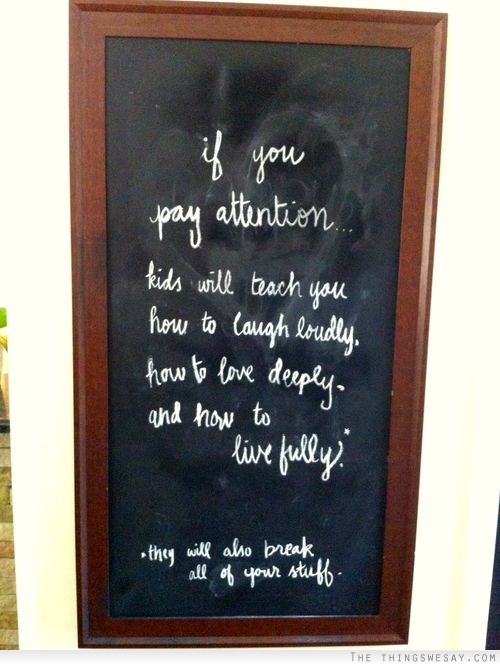 if you
pay attention...
kids will teach you
how to laugh loudly,
how to love deeply,
and how to
live fully.*
*they will also break
all of your stuff.
THE THINGSWESAY.COM